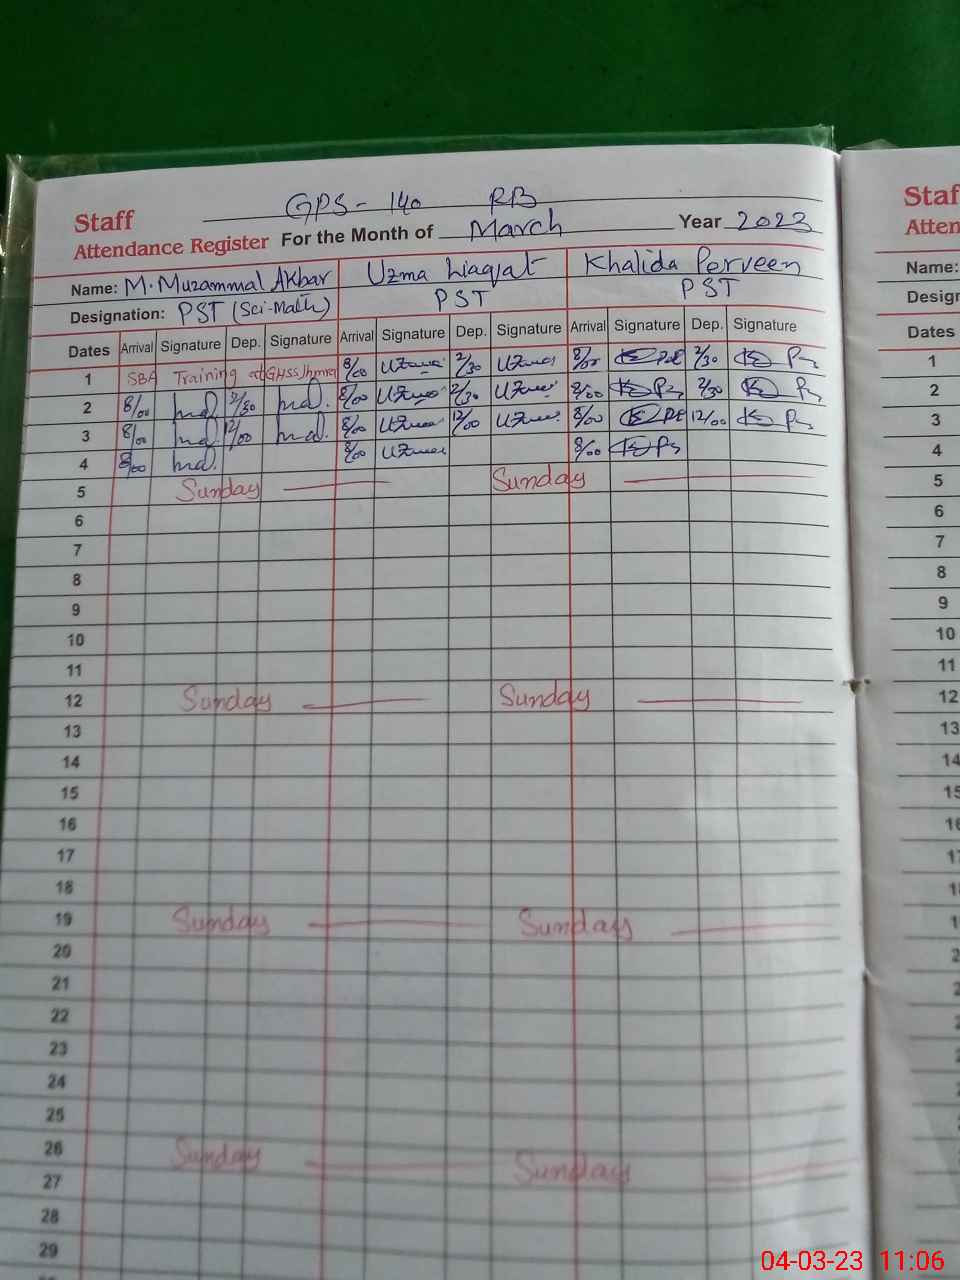 GPS - 140 RB
Staff
Attendance Register For the Month of March Year 2023
Name: M. Muzammal Akbar Uzma Liaqat Khalida Perveen
Designation: PST (Sci-Math) PST PST
Dates Arrival Signature Dep. Signature Arrival Signature Dep. Signature Arrival Signature Dep. Signature
1 SBA Training at GHSS 8/00 Uzma 2/30 Uzma 2/30
2 8/00 2/30 8/00 Uzma 2/30 Uzma 8/00 2/30
3 8/00 12/00 8/00 Uzma 12/00 Uzma 8/00 12/00
4 8/00 8/00 Uzma 8/00
5 Sunday Sunday
6
7
8
9
10
11
12 Sunday Sunday
13
14
15
16
17
18
19 Sunday Sunday
20
21
22
23
24
25
26 Sunday Sunday
27
28
29
Staf
Atten
Name:
Design
Dates
1
2
3
4
5
6
7
8
9
10
11
12
13
14
04-03-23 11:06